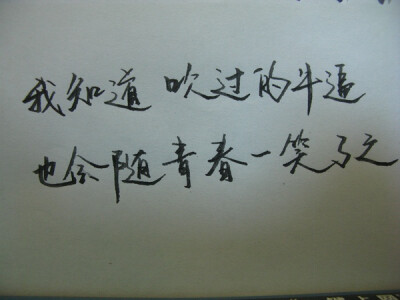 我知道 吹过的牛逼
也会随青春一笑了之